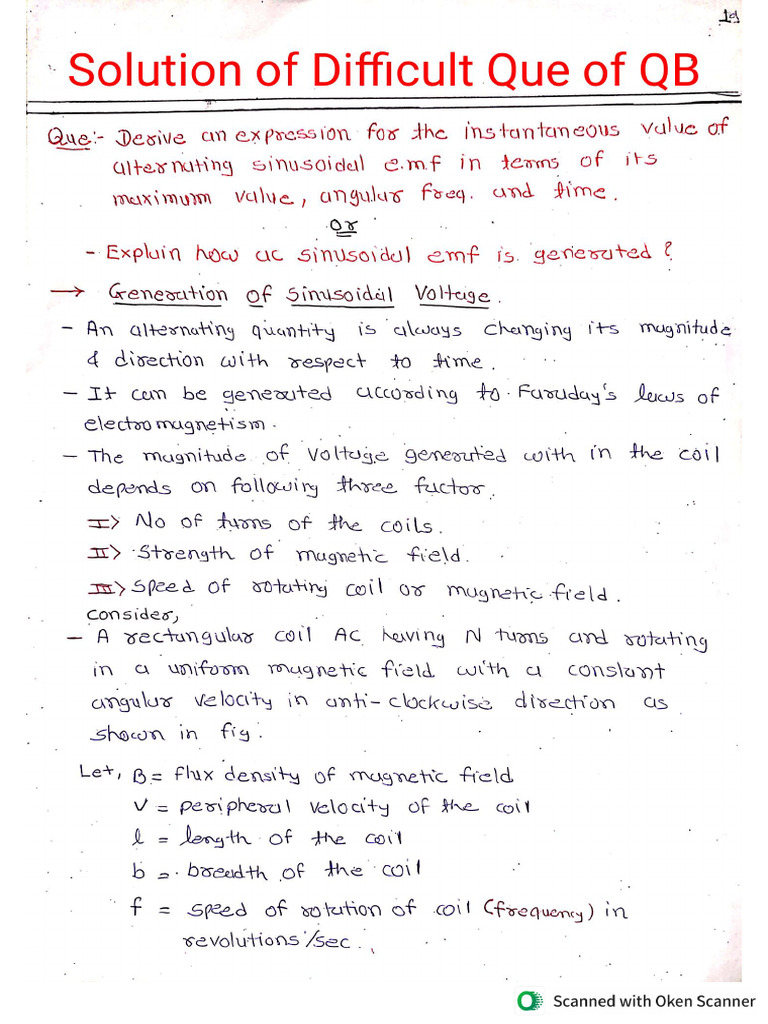 Solution of Difficult Que of QB
Que:- Derive an expression for the instantaneous value of
alternating sinusoidal e.m.f in terms of its
maximum value, angular freq. and time.
or
- Explain how ac sinusoidal emf is generated?
→ Generation of Sinusoidal Voltage.
- An alternating quantity is always changing its magnitude
& direction with respect to time.
- It can be generated according to Faraday's laws of
electromagnetism.
- The magnitude of voltage generated with in the coil
depends on following three factor.
I> No of turns of the coils.
II> Strength of magnetic field.
III> Speed of rotating coil or magnetic field.
consider,
- A rectangular coil AC having N turns and rotating
in a uniform magnetic field with a constant
angular velocity in anti-clockwise direction as
shown in fig.
Let, B = flux density of magnetic field
V = peripheral velocity of the coil
l = length of the coil
b = breadth of the coil
f = speed of rotation of coil (frequency) in
revolutions/sec.
Scanned with Oken Scanner